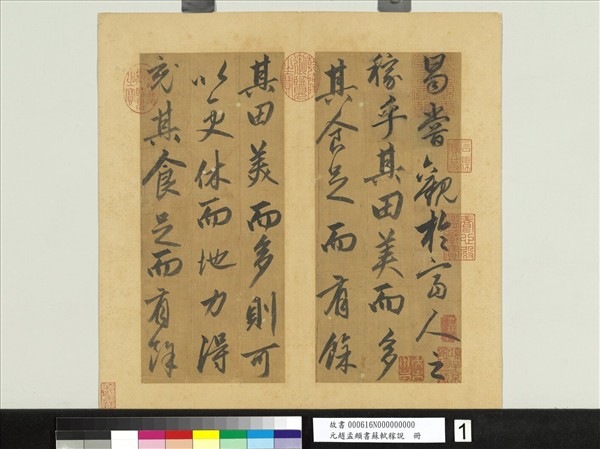 曷嘗觀於富人之
稼乎其田美而多
其食足而有餘
其田美而多則可
以更休而地力得
充其食足而有餘
故書 000616N000000000
元趙孟頫書蘇軾稼說 冊
1